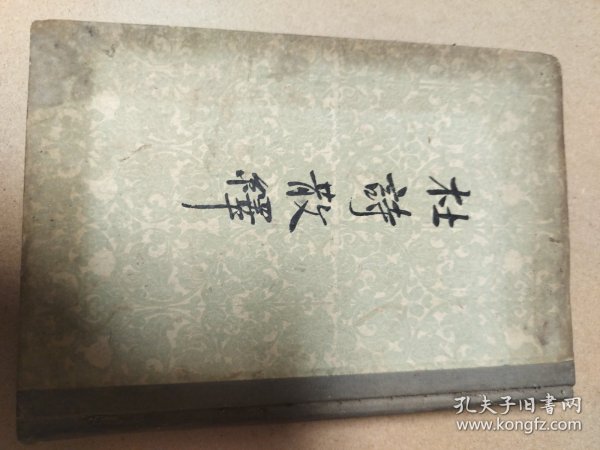 杜詩散繹
孔夫子旧書网
www.kongfz.com